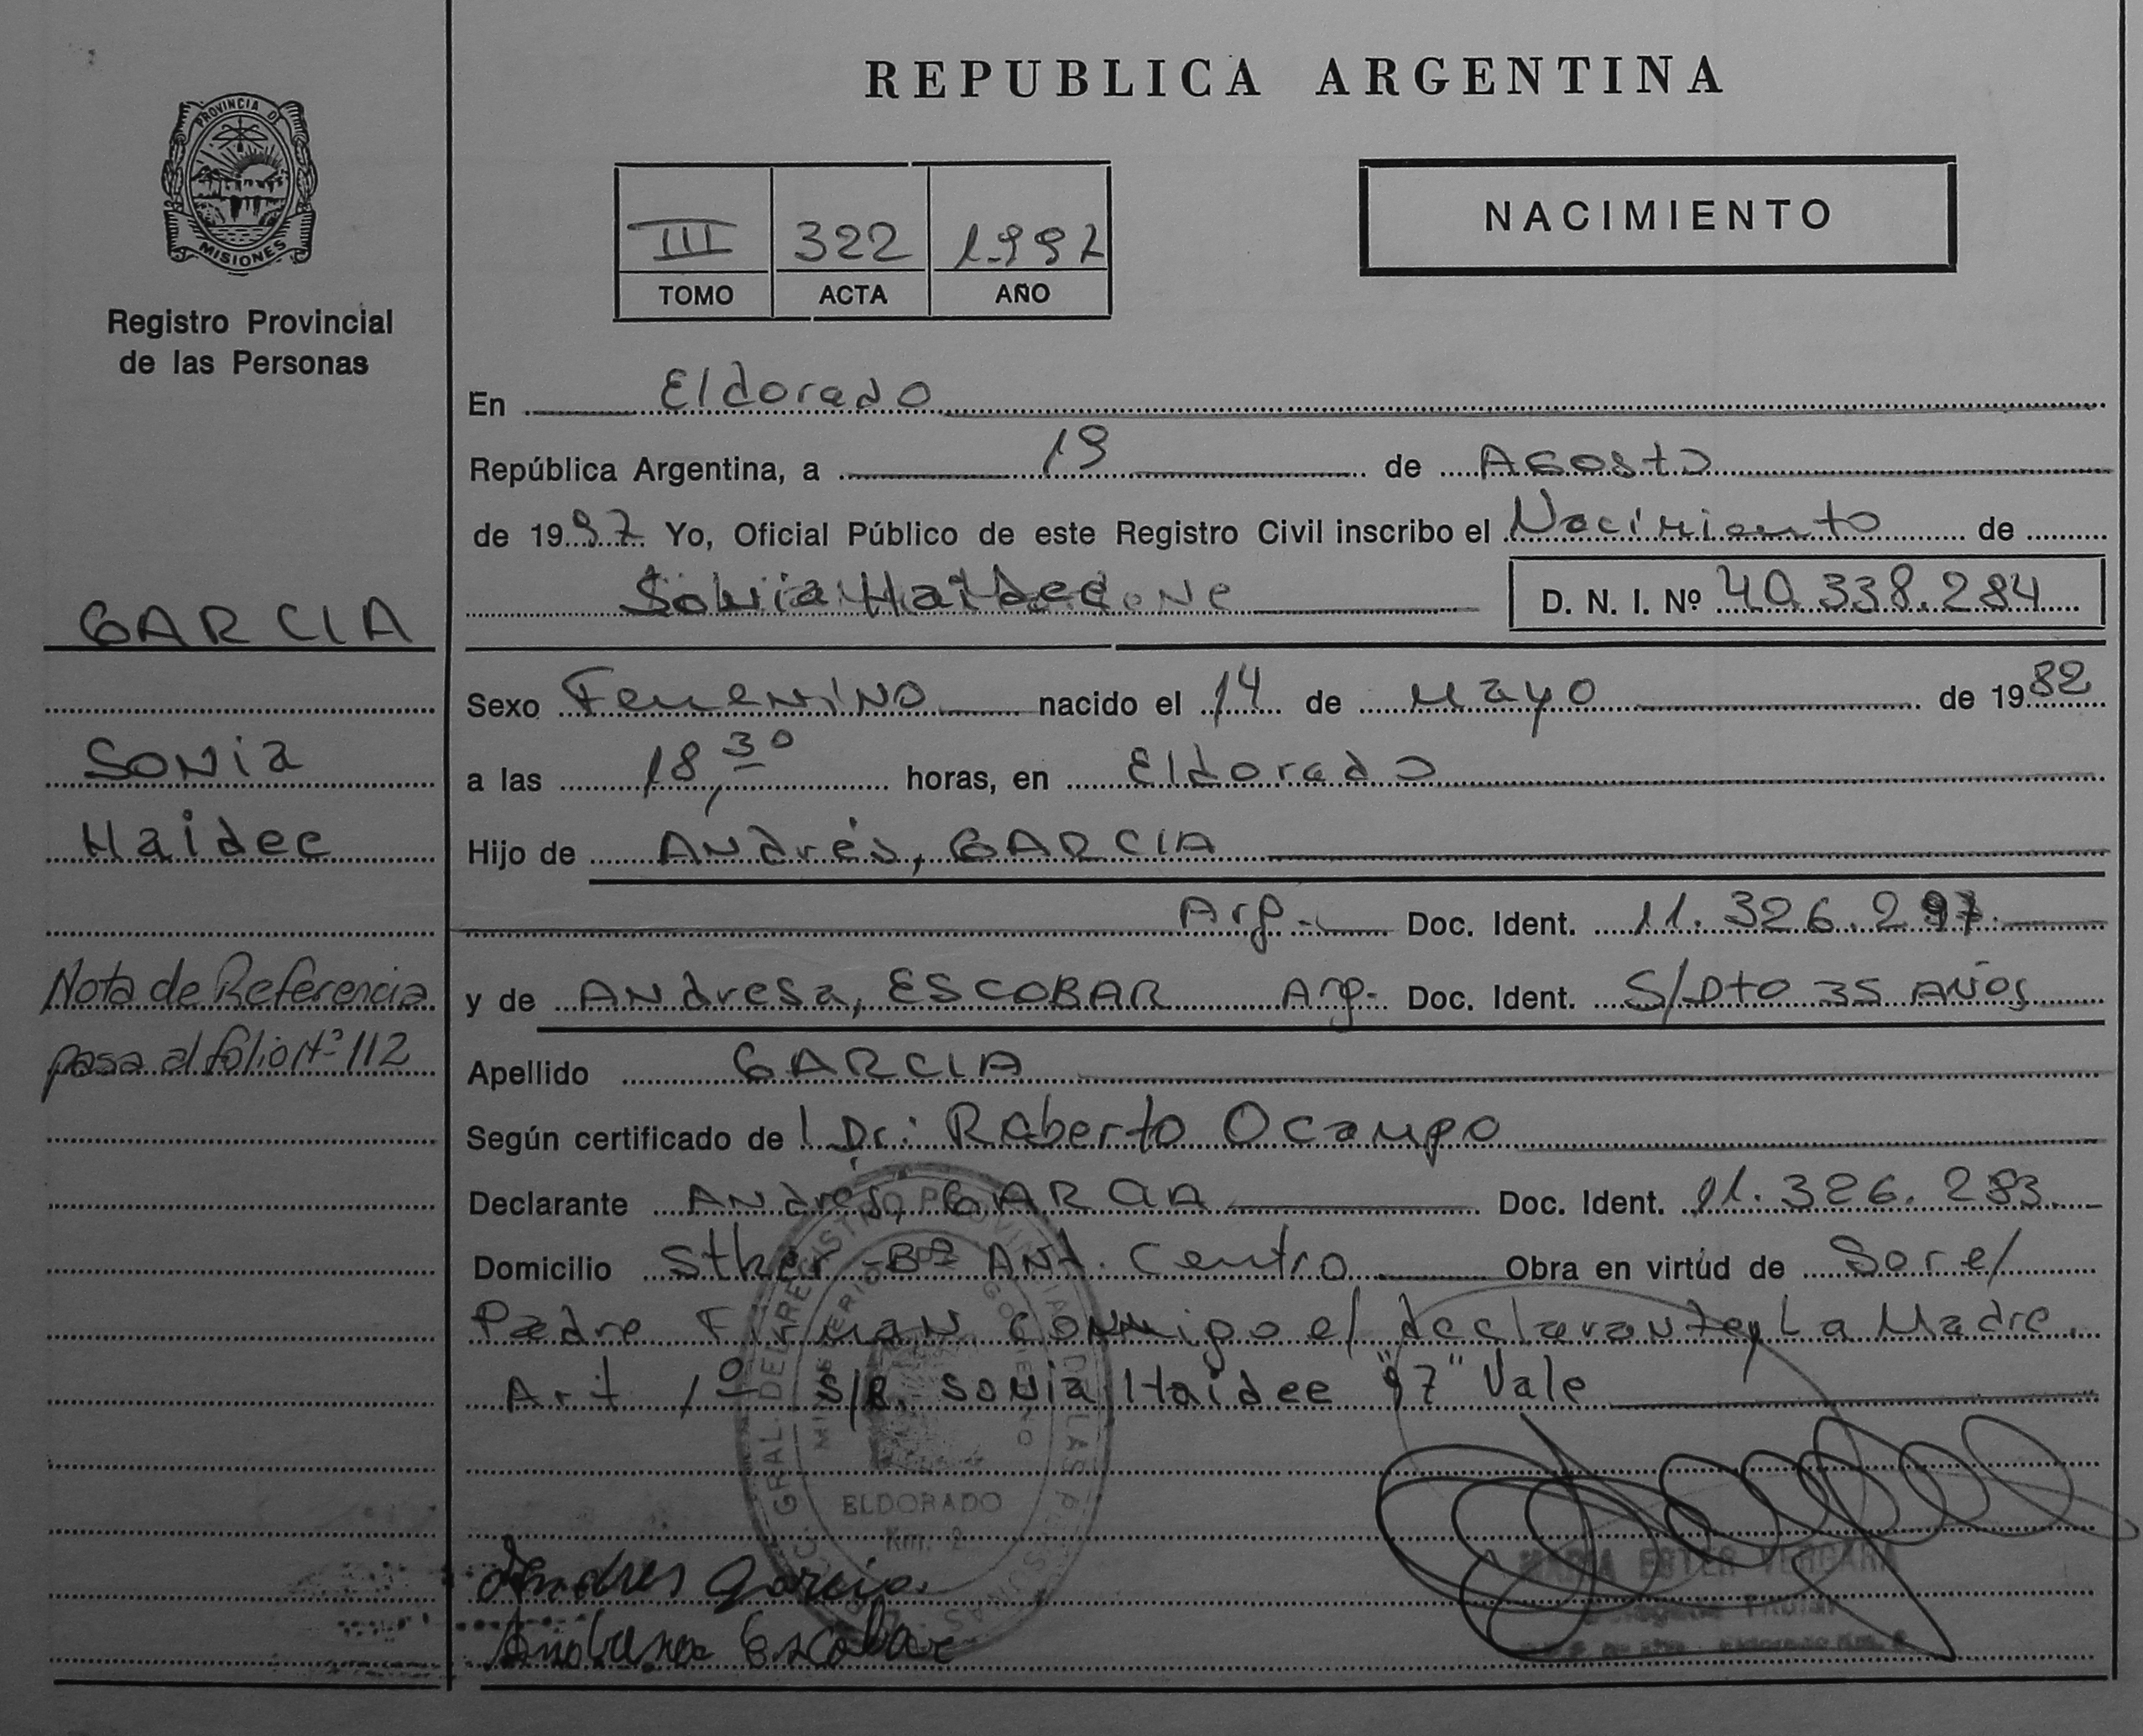 REPUBLICA ARGENTINA
PROVINCIA DE
MISIONES
Registro Provincial
de las Personas
III 322 1.997
TOMO ACTA AÑO
NACIMIENTO
En Eldorado
República Argentina, a 19 de Agosto
de 1997 Yo, Oficial Público de este Registro Civil inscribo el Nacimiento de
Haidee D. N. I. Nº 40.338.284
GARCIA
Sonia
Haidee
Nota de Referencia
pasa al folio Nº 112
Sexo Femenino nacido el 14 de Mayo de 19
a las 18,30 horas, en Eldorado
Hijo de Andrés, GARCIA
Arg.- Doc. Ident. 11.326.297.
y de Andresa, ESCOBAR Arg.- Doc. Ident. S/Dto 35 Años
Apellido GARCIA
Según certificado de Dr: Roberto Ocampo
Declarante Andrés, GARCIA Doc. Ident. 11.326.293.
Domicilio Sther - Bº Ant. Centro Obra en virtúd de Ser el
Padre Firman conmigo el declarante y La Madre.
Art 1º S/R. Sonia Haidee "97" Vale
ELDORADO
Km. 2
Andres Garcia.
Escobar
MARIA ESTER VERGARA